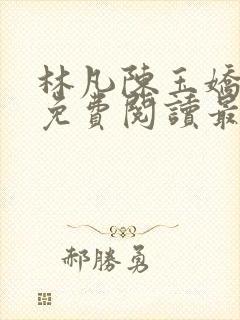 林凡陳玉嬌
免費閱讀最
郝勝勇